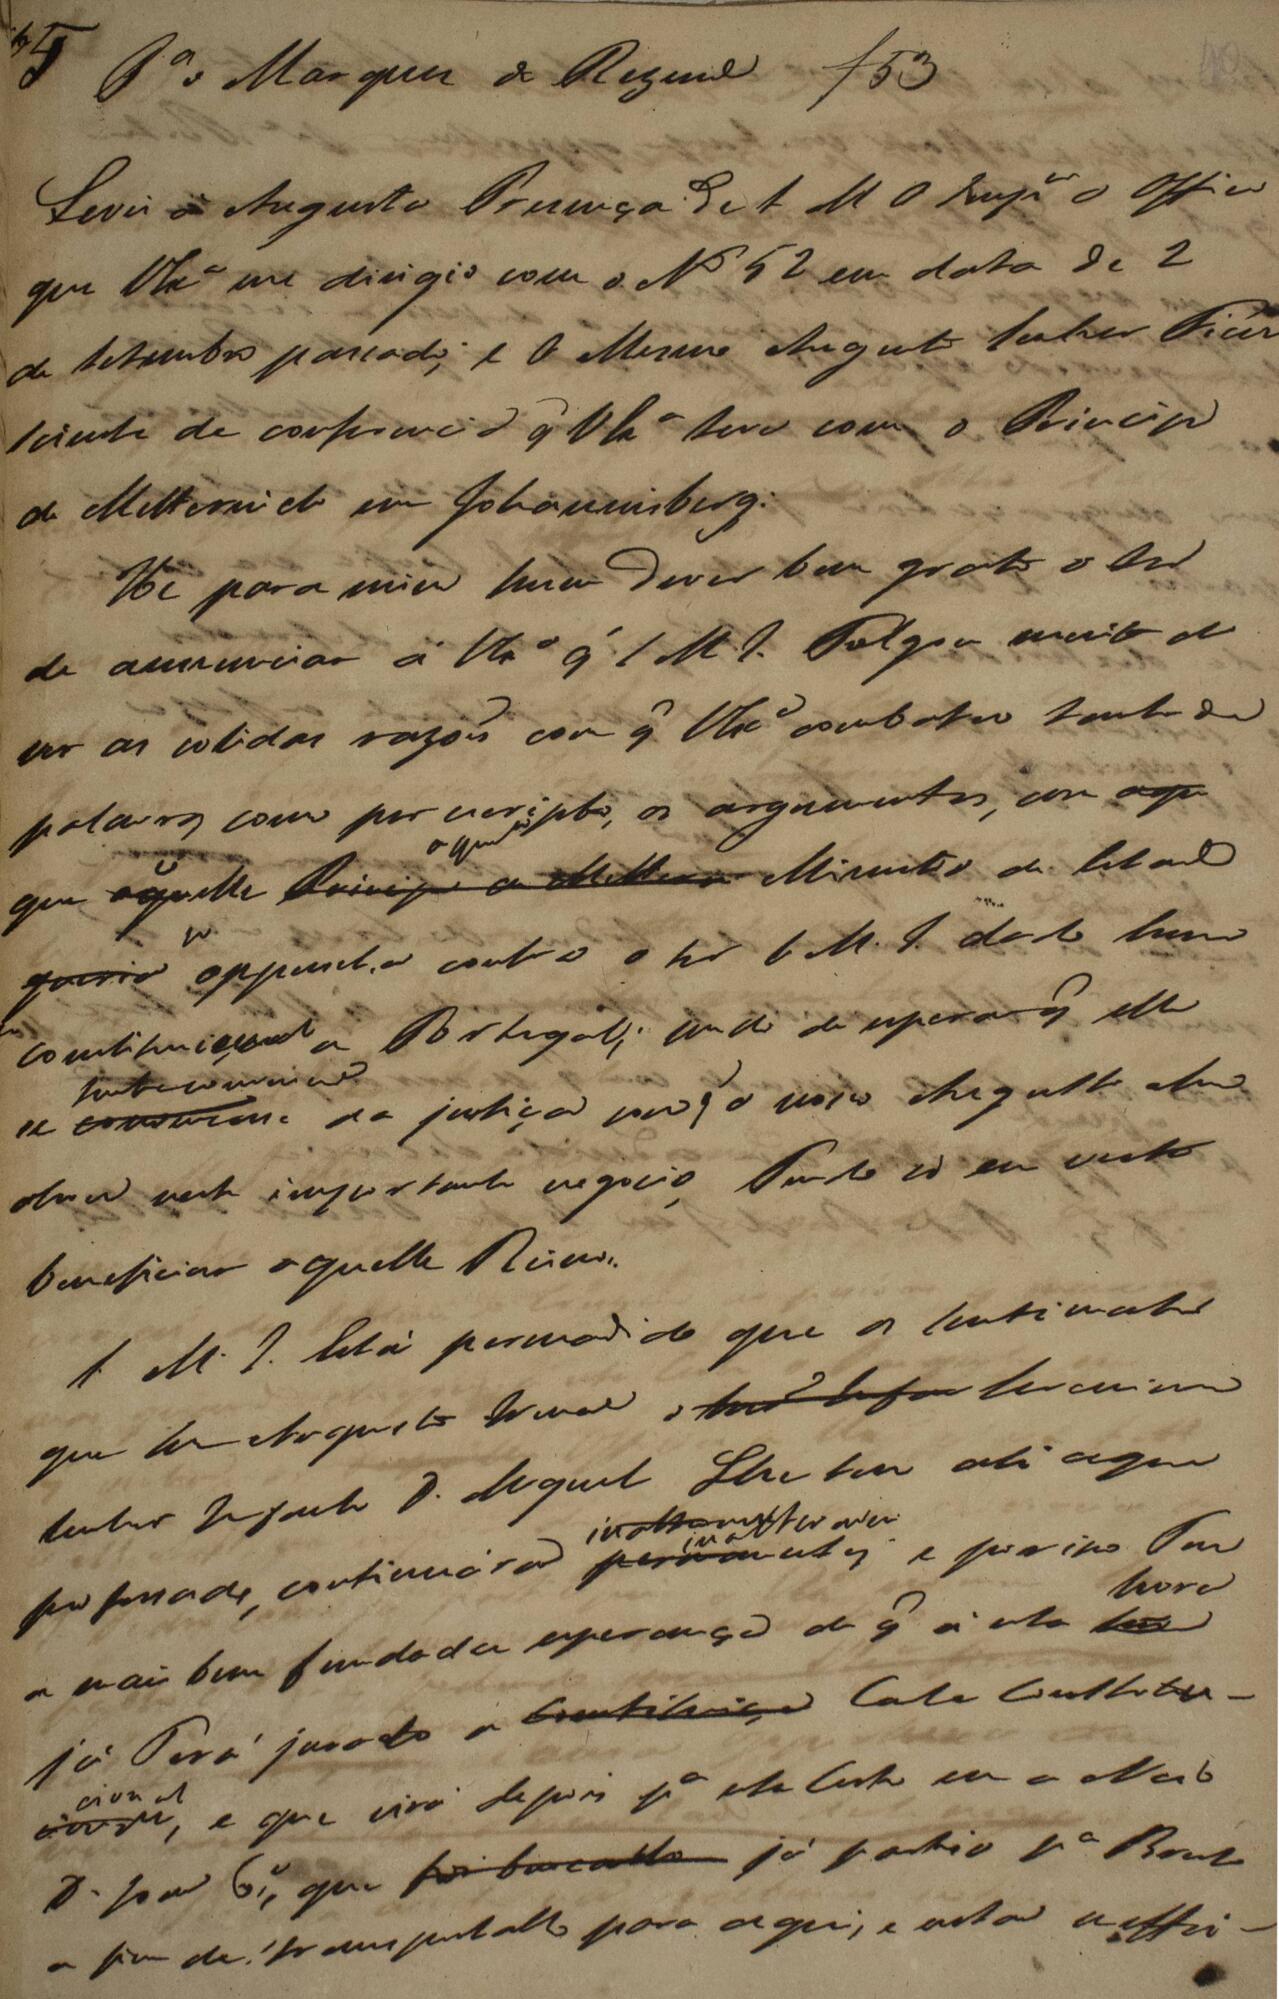 Pª o Marquez de Rezende /53
Levei á Augusta Presença de S M O Imp.ºʳ o Officio
que VExª me dirigio com o Nº 52 em data de 2
de Setembro passado; e O Mesmo Augusto Senhor Ficou
sciente da conferencia q̃ VExª teve com o Principe
de Metternich em Johannisberg.
He para mim hum dever bem grato o ter
de annunciar á VExª q̃ S M I. Folgou muito de
ver as solidas razões com q̃ VExª combateo tanto de
palavras, como por escripto, os argumentos, com
que aquelle Ministro de Estado
se oppunha contra o ter S. M. I. dado huma
Constituição a Portugal; sendo de esperar q̃ elle
se tenha convencido da justiça com q̃ o nosso Augusto Amo
obrou neste importante negocio, Tendo só em vista
beneficiar aquelle Reino.
S. M. I. Está persuadido que os sentimentos
que Seu Augusto Irmão o Serenissimo
Senhor Infante D. Miguel Lhe tem até aqui
professado, continuárão inalteraveis; e por isso Tem
a mais bem fundada esperança de q̃ á esta hora
já Terá jurado a Carta Constitu-
cional, e que virá depois pª esta Corte em a Náo
D. João 6º, que já partio pª Brest
a fim de transportallo para aqui, e estar a effei-